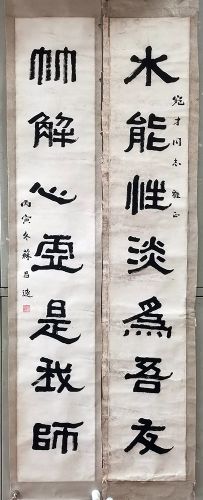 水能性淡為吾友
宛才同志雅正
竹解心虛是我師
丙寅冬蘇昌遼